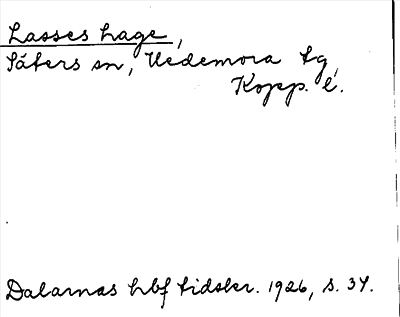 Lasses hage,
Säters sn, Hedemora tg,
Kopp. l.
Dalarnas hbf tidskr. 1926, s. 34.